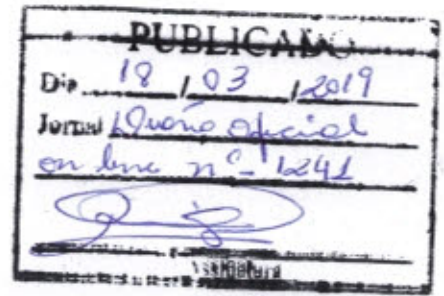 PUBLICADO
Dia 18 / 03 / 2019
Jornal Diário Oficial
on line nº 1241